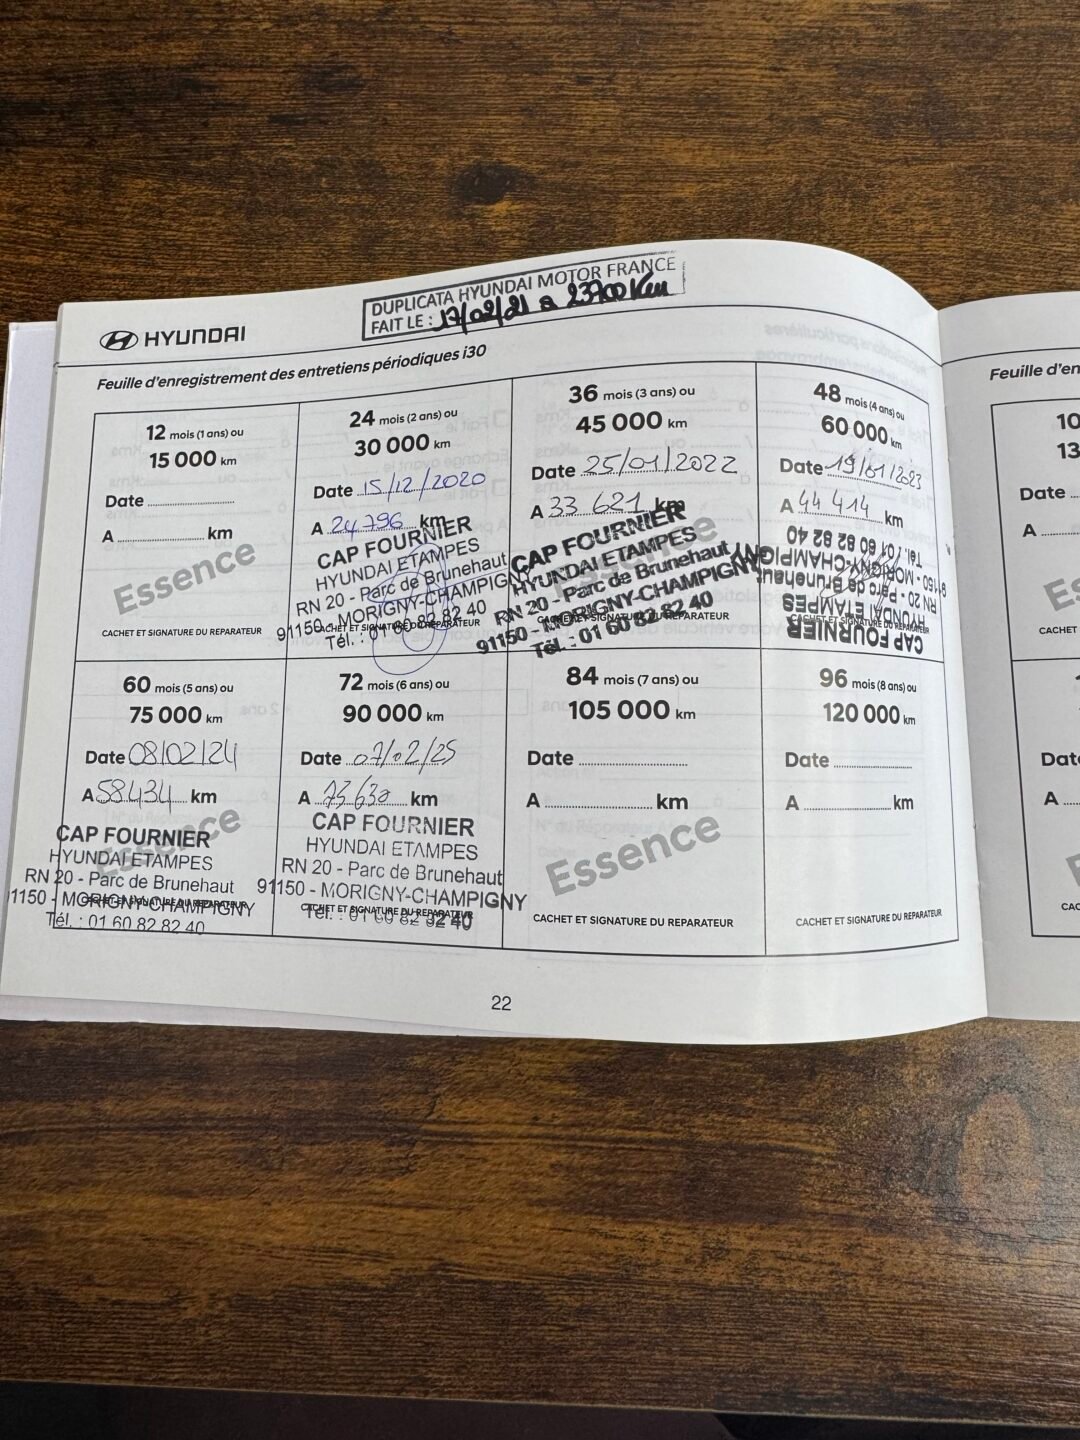 DUPLICATA HYUNDAI MOTOR FRANCE
FAIT LE : 17/02/21 a 23700 Km
HYUNDAI
Feuille d'enregistrement des entretiens périodiques i30
12 mois (1 ans) ou
15 000 km
Date
A km
Essence
CACHET ET SIGNATURE DU REPARATEUR
24 mois (2 ans) ou
30 000 km
Date 15/12/2020
A 24 796 km
CAP FOURNIER
HYUNDAI ETAMPES
RN 20 - Parc de Brunehaut
91150 - MORIGNY-CHAMPIGNY
Tél. : 01 60 82 82 40
CACHET ET SIGNATURE DU REPARATEUR
36 mois (3 ans) ou
45 000 km
Date 25/01/2022
A 33 621 km
CAP FOURNIER
HYUNDAI ETAMPES
RN 20 - Parc de Brunehaut
91150 - MORIGNY-CHAMPIGNY
Tél. : 01 60 82 82 40
CACHET ET SIGNATURE DU REPARATEUR
48 mois (4 ans) ou
60 000 km
Date 19/01/2023
A 44 414 km
CAP FOURNIER
HYUNDAI ETAMPES
RN 20 - Parc de Brunehaut
91150 - MORIGNY-CHAMPIGNY
Tél. : 01 60 82 82 40
CACHET ET SIGNATURE DU REPARATEUR
60 mois (5 ans) ou
75 000 km
Date 08/02/24
A 58434 km
Essence
CAP FOURNIER
HYUNDAI ETAMPES
RN 20 - Parc de Brunehaut
1150 - MORIGNY-CHAMPIGNY
CACHET ET SIGNATURE DU REPARATEUR
Tél. : 01 60 82 82 40
72 mois (6 ans) ou
90 000 km
Date 07/02/25
A 73630 km
CAP FOURNIER
HYUNDAI ETAMPES
RN 20 - Parc de Brunehaut
91150 - MORIGNY-CHAMPIGNY
CACHET ET SIGNATURE DU REPARATEUR
Tél. : 01 60 82 82 40
84 mois (7 ans) ou
105 000 km
Date
A km
Essence
CACHET ET SIGNATURE DU REPARATEUR
96 mois (8 ans) ou
120 000 km
Date
A km
CACHET ET SIGNATURE DU REPARATEUR
22
Feuille d'en
10
13
Date
A
Es
CACHET
Dat
A
CAC